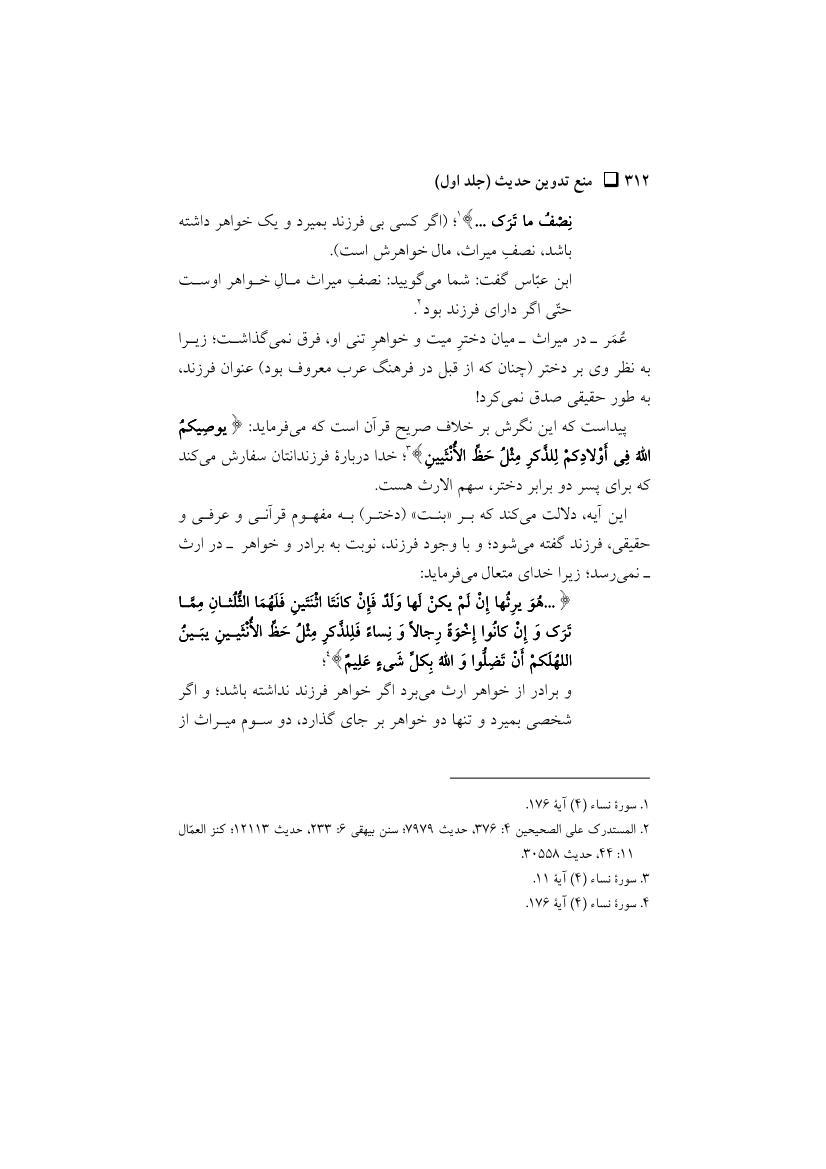 ۳۱۲ ❑ منع تدوین حدیث (جلد اول)
نِصْفُ ما تَرَک ...﴾۱؛ (اگر کسی بی فرزند بمیرد و یک خواهر داشته
باشد، نصفِ میراث، مال خواهرش است).
ابن عبّاس گفت: شما می‌گویید: نصفِ میراث مـالِ خـواهر اوسـت
حتّی اگر دارای فرزند بود۲.
عُمَر ـ در میراث ـ میان دخترِ میت و خواهرِ تنی او، فرق نمی‌گذاشـت؛ زیـرا
به نظر وی بر دختر (چنان که از قبل در فرهنگ عرب معروف بود) عنوان فرزند،
به طور حقیقی صدق نمی‌کرد!
پیداست که این نگرش بر خلاف صریح قرآن است که می‌فرماید: ﴿ یوصِیکمُ
اللهُ فِی أَوْلادِکمْ لِلذَّکرِ مِثْلُ حَظِّ الأُنْثَیینِ﴾۳؛ خدا دربارهٔ فرزندانتان سفارش می‌کند
که برای پسر دو برابر دختر، سهم الارث هست.
این آیه، دلالت می‌کند که بـر «بنـت» (دختـر) بـه مفهـوم قرآنـی و عرفـی و
حقیقی، فرزند گفته می‌شود؛ و با وجود فرزند، نوبت به برادر و خواهر ـ در ارث
ـ نمی‌رسد؛ زیرا خدای متعال می‌فرماید:
﴿ ...هُوَ یرِثُها إِنْ لَمْ یکنْ لَها وَلَدٌ فَإِنْ کانَتَا اثْنَتَینِ فَلَهُمَا الثُّلُثـانِ مِمَّـا
تَرَک وَ إِنْ کانُوا إِخْوَةً رِجالاً وَ نِساءً فَلِلذَّکرِ مِثْلُ حَظِّ الأُنْثَیـینِ یبَـینُ
اللهُلَکمْ أَنْ تَضِلُّوا وَ اللهُ بِکلِّ شَیءٍ عَلِیمٌ﴾۴؛
و برادر از خواهر ارث می‌برد اگر خواهر فرزند نداشته باشد؛ و اگر
شخصی بمیرد و تنها دو خواهر بر جای گذارد، دو سـوم میـراث از
۱. سورهٔ نساء (۴) آیهٔ ۱۷۶.
۲. المستدرک علی الصحیحین ۴: ۳۷۶، حدیث ۷۹۷۹؛ سنن بیهقی ۶: ۲۳۳، حدیث ۱۲۱۱۳؛ کنز العمّال
۱۱: ۴۴، حدیث ۳۰۵۵۸.
۳. سورهٔ نساء (۴) آیهٔ ۱۱.
۴. سورهٔ نساء (۴) آیهٔ ۱۷۶.